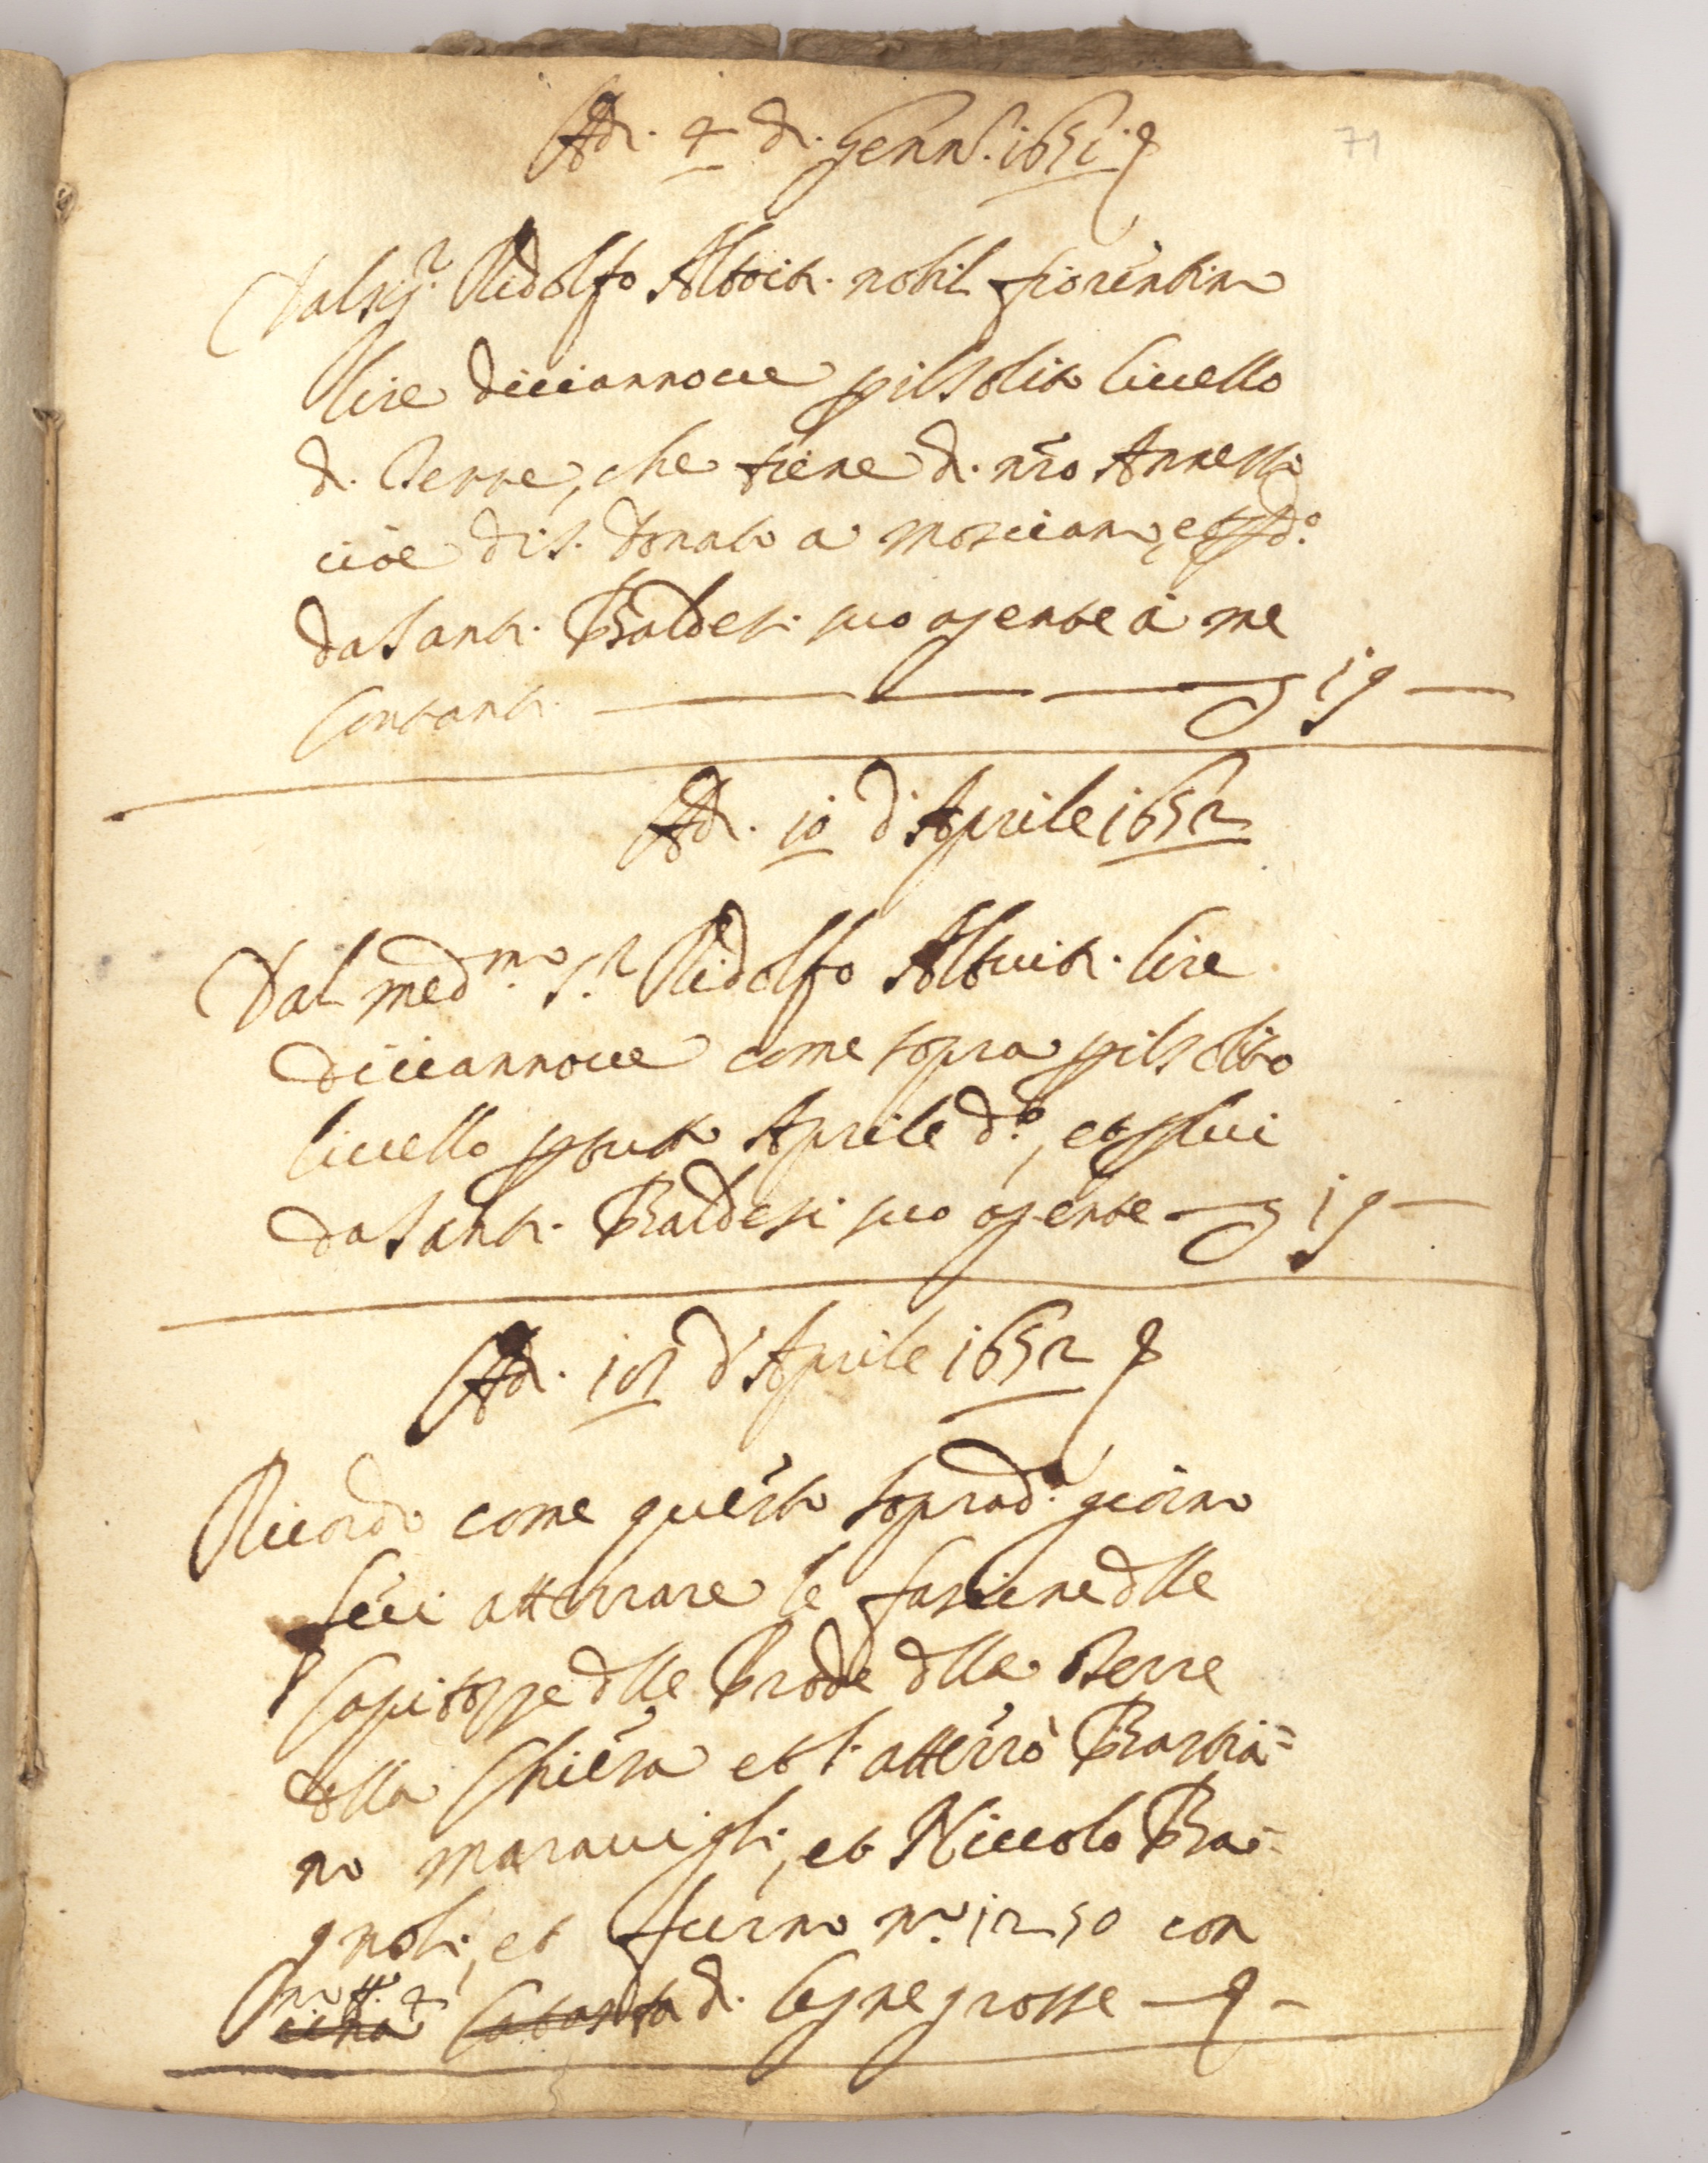 71
Adi. 4 di. Genn.o 1651
Dal Sig.r Ridolfo Altoiti. nobil fiorentino
lire diciannove p il solito livello
di. Terre, che tiene di. nro Annessi
cioè di S. Donato a Mosciano, et p d.o
da Santi. Baldesi. suo agente à me
Contanti. 19
Adi. 10 d'Aprile 1652
Dal med.mo S.r Ridolfo Altuiti. lire
diciannove come sopra p il solito
livello p tutto Aprile d.o, et p lui
da Santi. Baldesi suo agente 19
Adi. d'Aprile 1652
Ricordo come questo soprad.o giorno
feci atterrare le fascine dlle
Capitozze dlle Prode dlla Terre
dlla Chiesa et l'atterrò Bastia=
no Maravigli, et Niccolo Ba=
gnoli, et furno n.o 1250 con
di. legne grosse